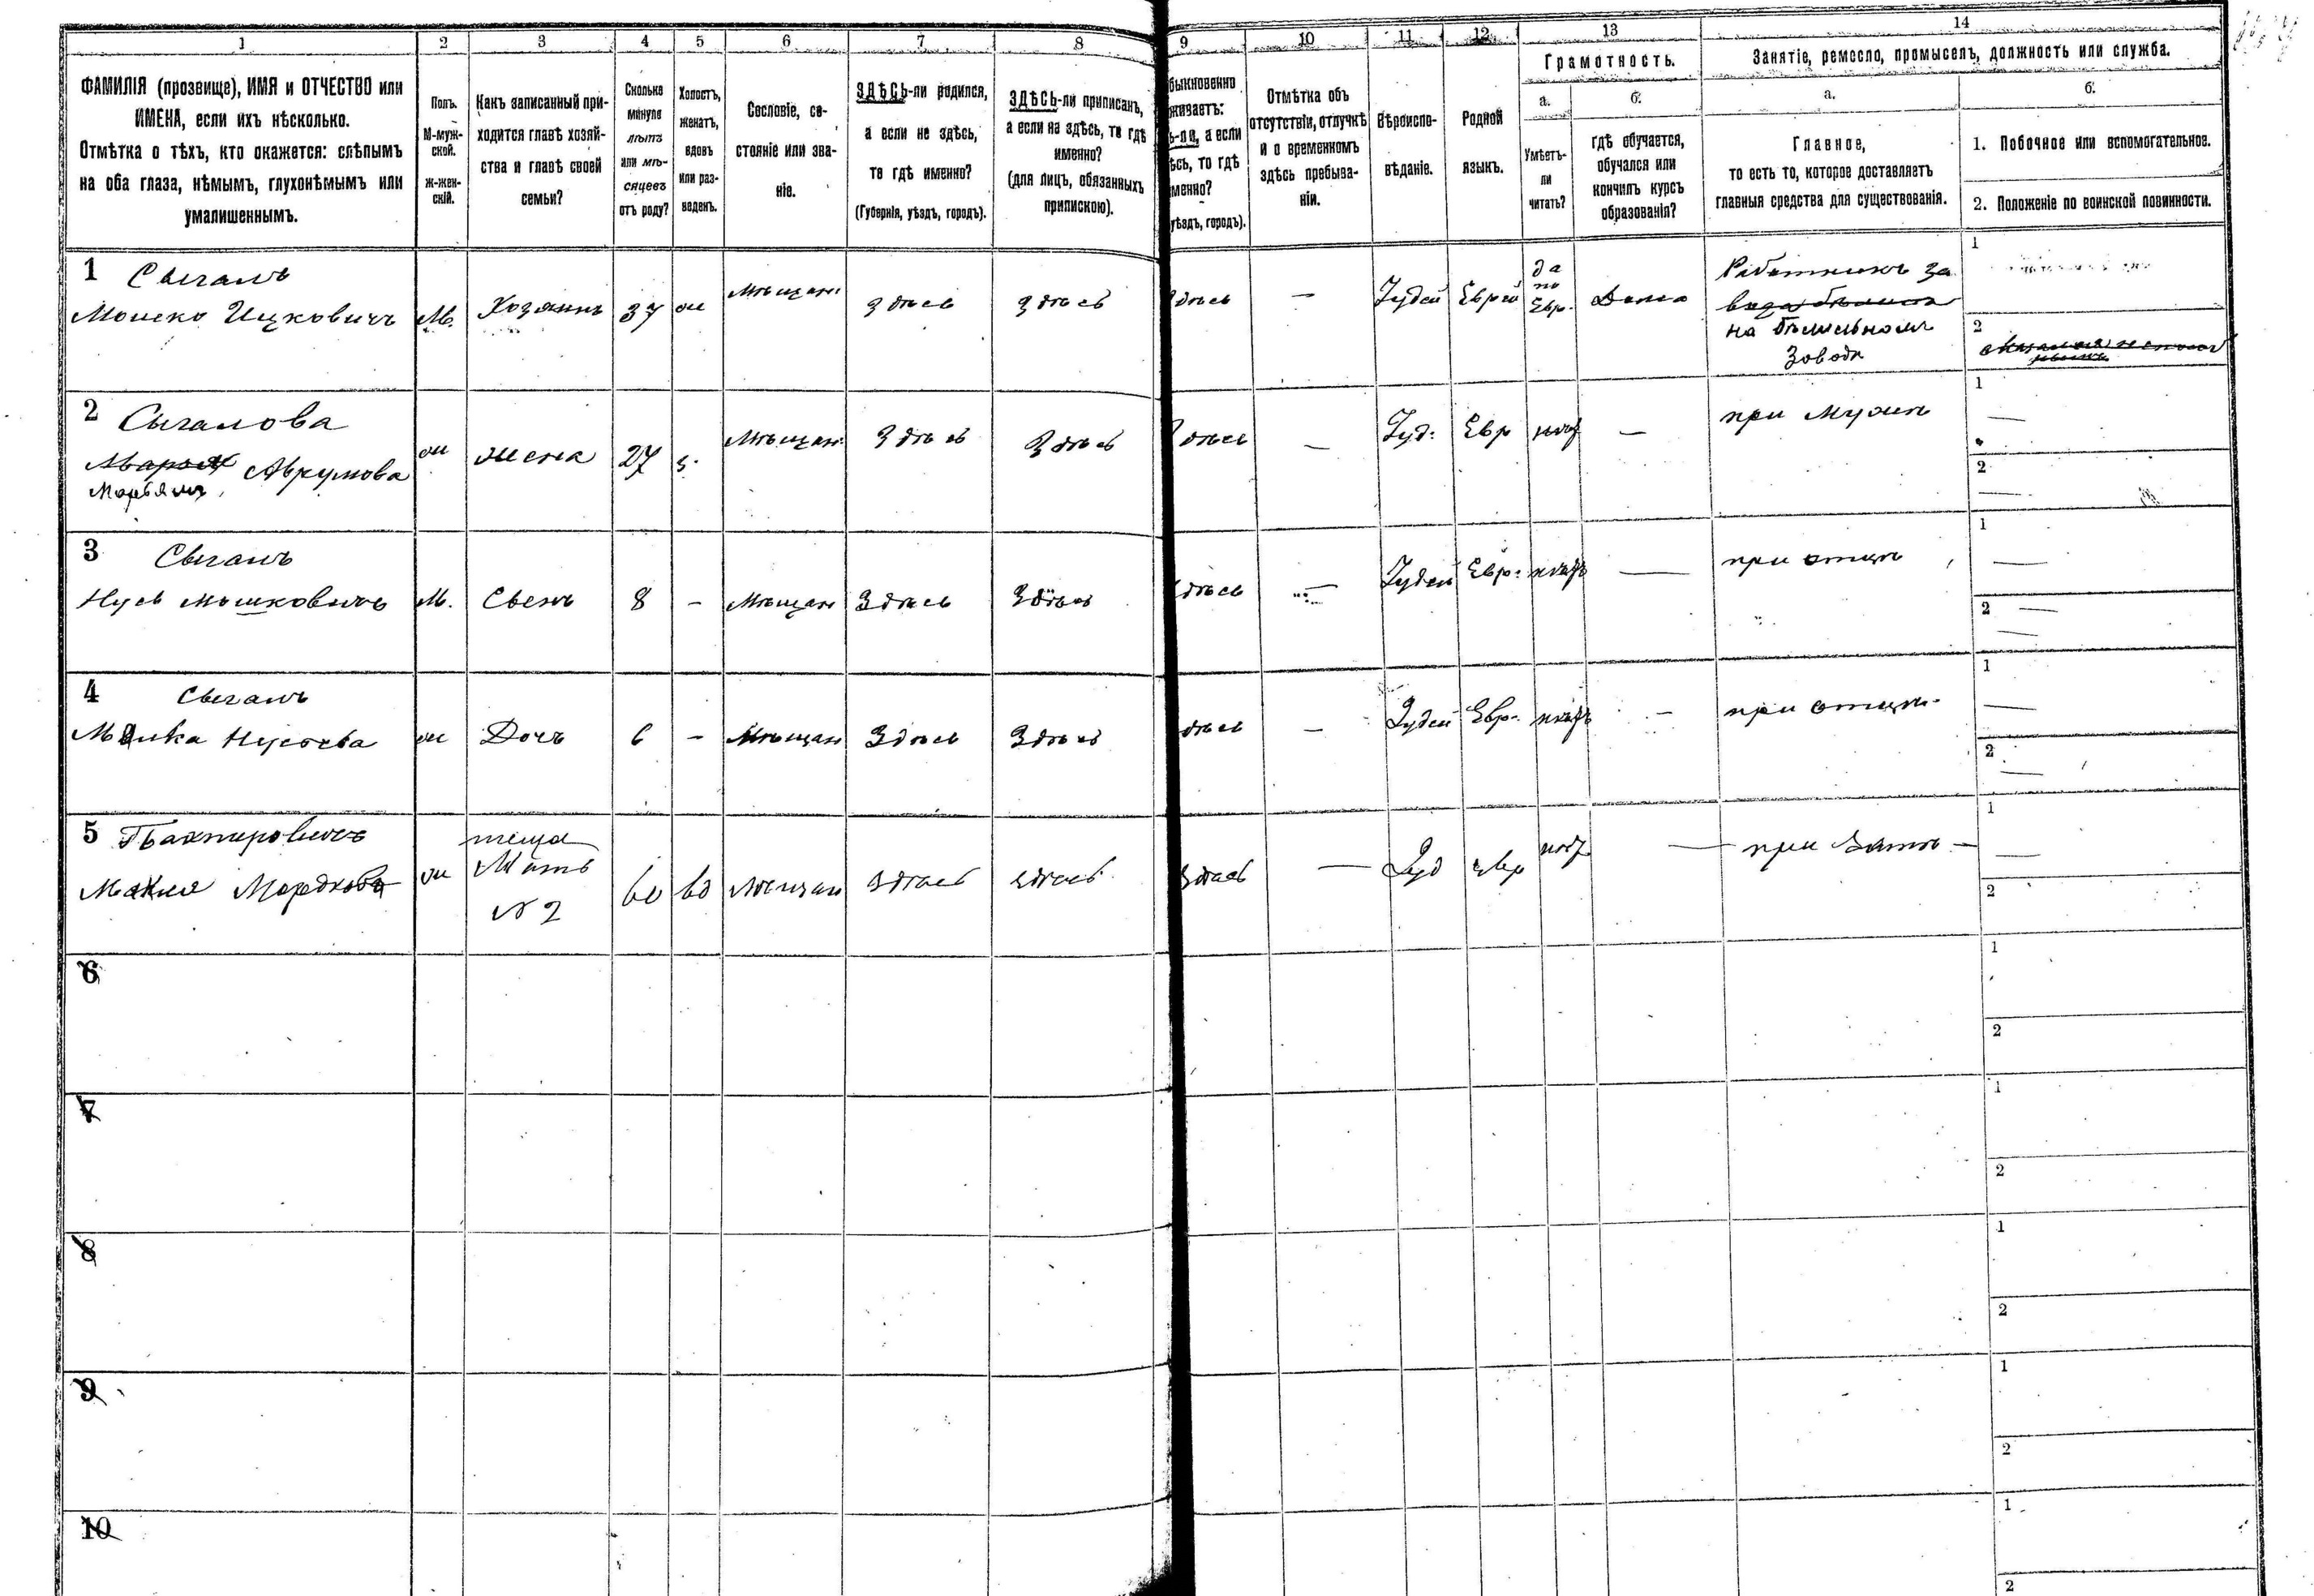 1 2 3 4 5 6 7 8 9 10 11 12 13 14
ФАМИЛІЯ (прозвище), ИМЯ и ОТЧЕСТВО или
ИМЕНА, если ихъ нѣсколько.
Отмѣтка о тѣхъ, кто окажется: слѣпымъ
на оба глаза, нѣмымъ, глухонѣмымъ или
умалишеннымъ.
Полъ.
М-муж-
ской.
ж-жен-
скій.
Какъ записанный при-
ходится главѣ хозяй-
ства и главѣ своей
семьи?
Сколько
минуло
лѣтъ
или мѣ-
сяцевъ
отъ роду?
Холостъ,
женатъ,
вдовъ
или раз-
веденъ.
Сословіе, со-
стояніе или зва-
ніе.
ЗДѢСЬ-ли родился,
а если не здѣсь,
то гдѣ именно?
(Губернія, уѣздъ, городъ).
ЗДѢСЬ-ли приписанъ,
а если на здѣсь, то гдѣ
именно?
(для лицъ, обязанныхъ
припискою).
быкновенно
живаетъ:
ь-ли, а если
ѣсь, то гдѣ
менно?
уѣздъ, городъ).
Отмѣтка объ
отсутствіи, отлучкѣ
и о временномъ
здѣсь пребыва-
ніи.
Вѣроиспо-
вѣданіе.
Родной
языкъ.
Грамотность.
а.
Умѣетъ-
ли
читать?
б.
гдѣ обучается,
обучался или
кончилъ курсъ
образованія?
Занятіе, ремесло, промыселъ, должность или служба.
а.
Главное,
то есть то, которое доставляетъ
главныя средства для существованія.
б.
1. Побочное или вспомогательное.
2. Положеніе по воинской повинности.
1 Сыгалъ
Мошко Ицковичъ М. Хозяинъ 37 ж Мѣщан. Здѣсь Здѣсь Здѣсь — Іудей Еврей
да
по
Евр.
Дома
Работникъ за
на бѣлильномъ
Заводѣ
1
2
2 Сыгалова
Аврумова ж жена 27 з. Мѣщан. Здѣсь Здѣсь Здѣсь — Іуд. Евр — при Мужѣ
Марьямъ
1 —
2 —
3 Сыгалъ
Нусь Мошковичъ М. Сынъ 8 – Мѣщан Здѣсь Здѣсь Здѣсь — Іудей Евр. — при отцѣ
1 —
2 —
4 Сыгалъ
Малка Нусьева ж Дочь 6 – Мѣщан Здѣсь Здѣсь дѣсь — Іудей Евр. — при отцѣ
1 —
2 —
5
Мордкова ж
теща
Мать
№ 2
60 вд Мѣщан Здѣсь здѣсь здѣсь — Іуд Евр — при Зятѣ —
1 —
2
6
1
2
7
1
2
8
1
2
9
1
2
10
1
2